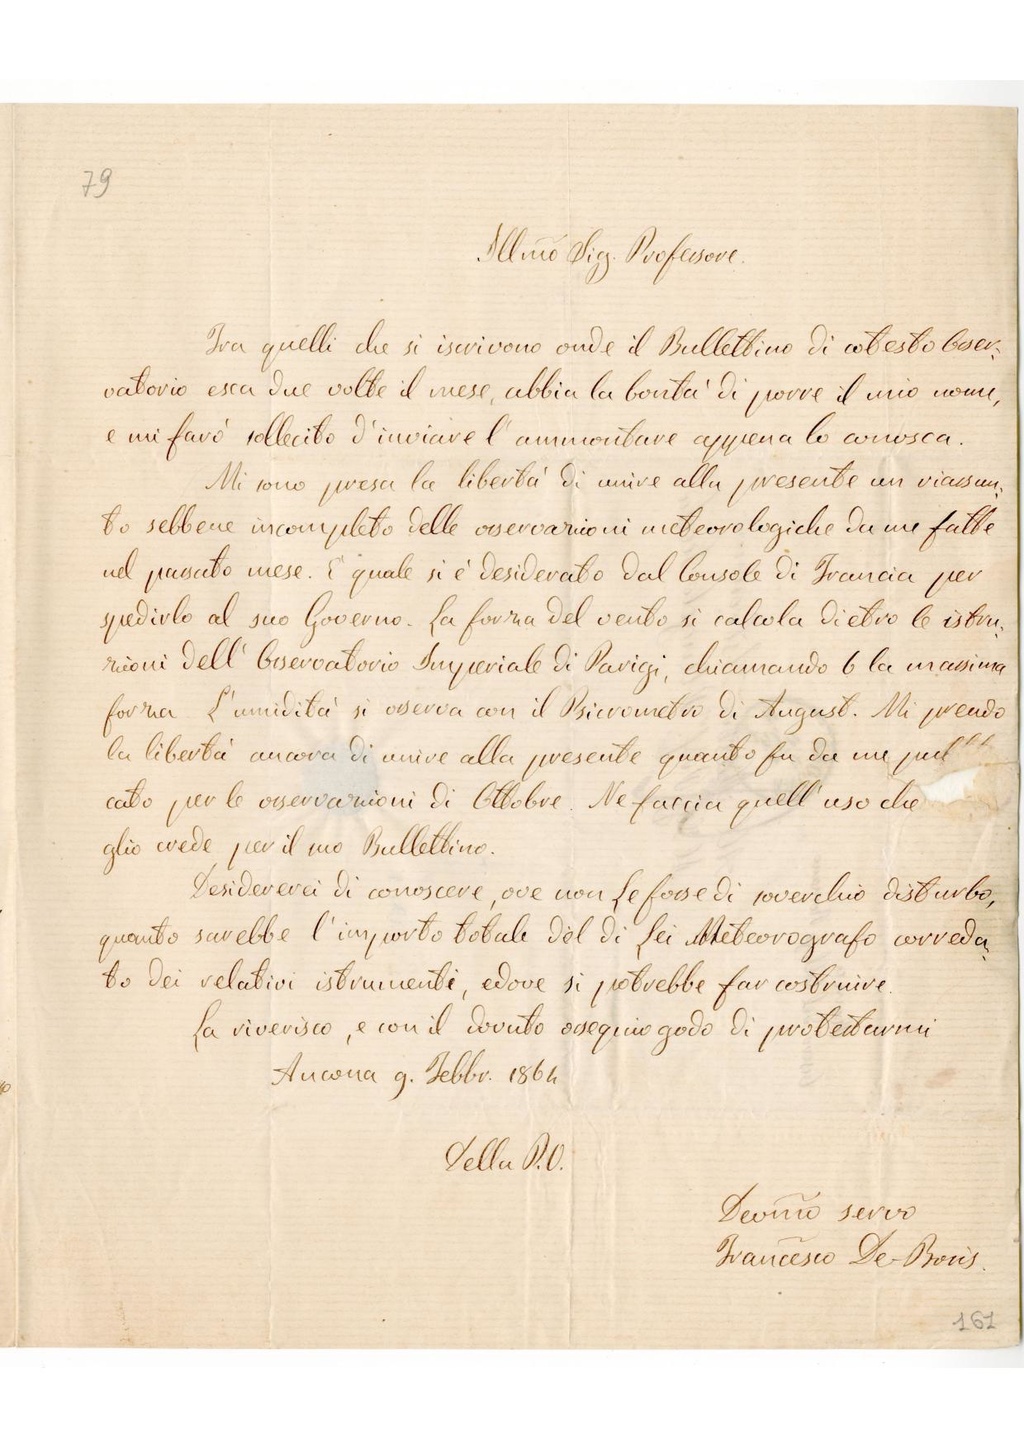 79
Illmo Sig. Professore.
Tra quelli che si iscrivono onde il Bullettino di cotesto Osser-
vatorio esca due volte il mese, abbia la bontá di porre il mio nome,
e mi faró sollecito d'inviare l'ammontare appena lo conosca.
Mi sono presa la libertá di unire alla presente un riassun-
to sebbene incompleto delle osservazioni meteorologiche da me fatte
nel passato mese. E quale si é desiderato dal Console di Francia per
spedirlo al suo Governo. La forza del vento si calcola dietro le istru-
zioni dell'Osservatorio Imperiale di Parigi, chiamando 6 la massima
forza L'umiditá si osserva con il Psicrometro di August. Mi prendo
la libertá ancora di unire alla presente quanto fu da me
cato per le osservazioni di Ottobre. Ne faccia quell'uso che
glio crede per il suo Bullettino.
Desidererei di conoscere, ove non Le fosse di soverchio disturbo,
quanto sarebbe l'importo totale del di Lei Meteorografo correda-
to dei relativi istrumenti, e dove si potrebbe far costruire.
La riverisco, e con il dovuto ossequio godo di protestarmi
Ancona 9. Febbr. 1864
Della P.V.
Devmo servo
Francesco De-Bosis.
161